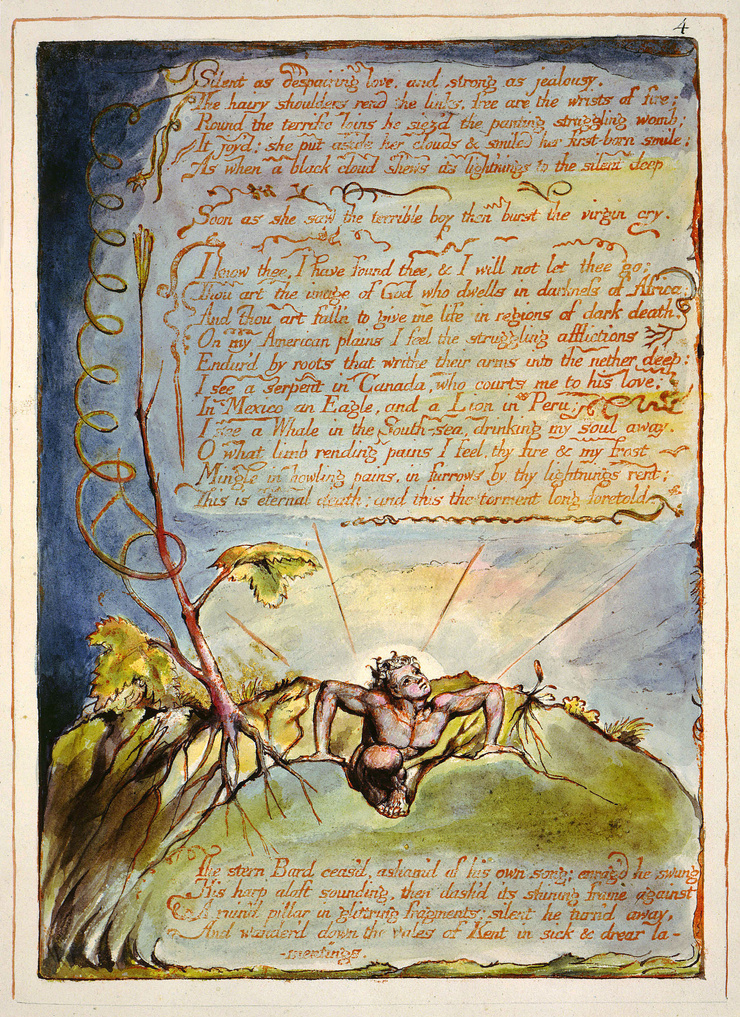 4
Silent as despairing love, and strong as jealousy,
The hairy shoulders rend the links, free are the wrists of fire;
Round the terrific loins he siez'd the panting struggling womb;
It joy'd: she put aside her clouds & smiled her first-born smile;
As when a black cloud shews its lightnings to the silent deep
Soon as she saw the terrible boy then burst the virgin cry.
I know thee, I have found thee, & I will not let thee go;
Thou art the image of God who dwells in darkness of Africa;
And thou art fall'n to give me life in regions of dark death.
On my American plains I feel the struggling afflictions
Endur'd by roots that writhe their arms into the nether deep:
I see a serpent in Canada, who courts me to his love;
In Mexico an Eagle, and a Lion in Peru;
I see a Whale in the South-sea, drinking my soul away.
O what limb rending pains I feel, thy fire & my frost
Mingle in howling pains, in furrows by thy lightnings rent;
This is eternal death; and this the torment long foretold.
The stern Bard ceas'd, asham'd of his own song; enrag'd he swung
His harp aloft sounding, then dash'd its shining frame against
A ruin'd pillar in glittring fragments; silent he turn'd away,
And wander'd down the vales of Kent in sick & drear la-
-mentings.